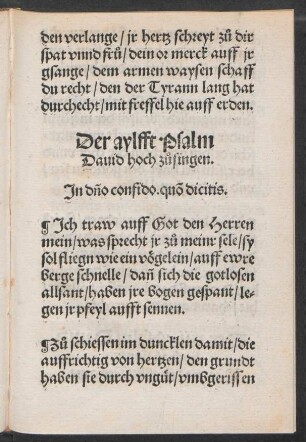 den verlange/ jr hertz schreyt zů dir
spat vnnd frů/ dein or merck auff jr
gsange/ dem armen waysen schaff
du recht/ den der Tyrann lang hat
durchecht/ mit freffel hie auff erden.
Der aylfft Psalm
Dauid hoch zůsingen.
In dño confido. quõ dicitis.
¶ Ich traw auff Got den Herren
mein/ was sprecht jr zů meinr sele/ sy
sol fliegn wie ein vögelein/ auff ewre
berge schnelle/ dañ sich die gotlosen
allsant/ haben jre bogen gespant/ le-
gen jr pfeyl aufft sennen.
¶ Zů schiessen im duncklen damit/ die
auffrichtig von hertzen/ den grundt
haben sie durch vngůt/ vmbgerissen